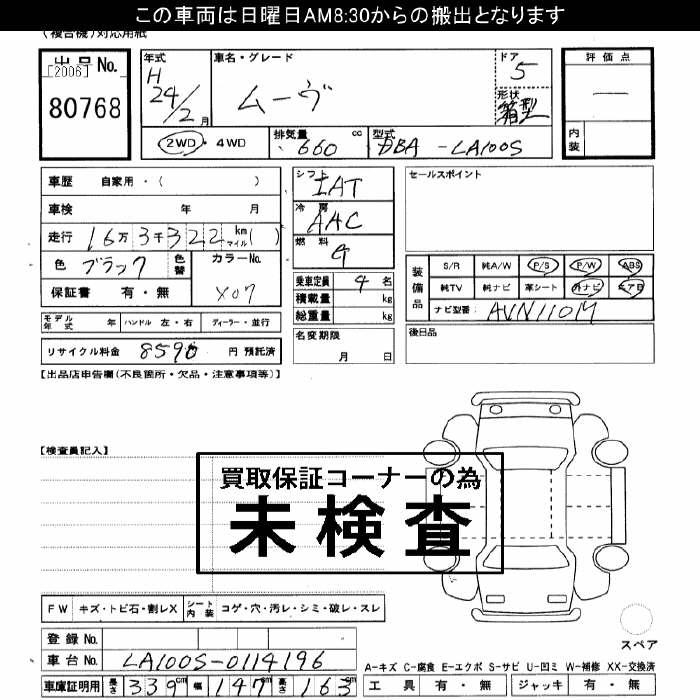 この車両は日曜日AM8:30からの搬出となります
(複合機)対応用紙
出品No.
[2006]
80768
年式
H
24/2月
車名・グレード
ムーヴ
ドア
5
形状
箱型
評価点
—
内装
2WD・4WD
排気量
660 cc
型式
DBA-LA100S
車歴 自家用・( )
車検 年 月
走行 16万3千322 km マイル( )
色 ブラック 色替
カラーNo.
X07
保証書 有・無
シフト
IAT
冷房
AAC
燃料
G
乗車定員 4名
積載量 kg
総重量 kg
セールスポイント
装備品
S/R 純A/W P/S P/W ABS
純TV 純ナビ 革シート 外ナビ エアB
ナビ型番 AVN110M
モデル年式 年 ハンドル 左・右 ディーラー・並行
リサイクル料金 8590 円 預託済
名変期限
月 日
後日品
【出品店申告欄(不良箇所・欠品・注意事項等)】
【検査員記入】
買取保証コーナーの為
未検査
FW キズ・トビ石・割レX シート内装 コゲ・穴・汚レ・シミ・破レ・スレ
登録No.
車台No. LA100S-0114196
車庫証明用 長さ 339cm 幅 147cm 高さ 163cm
スペア
A-キズ C-腐食 E-エクボ S-サビ U-凹ミ W-補修 XX-交換済
工具 有・無 ジャッキ 有・無